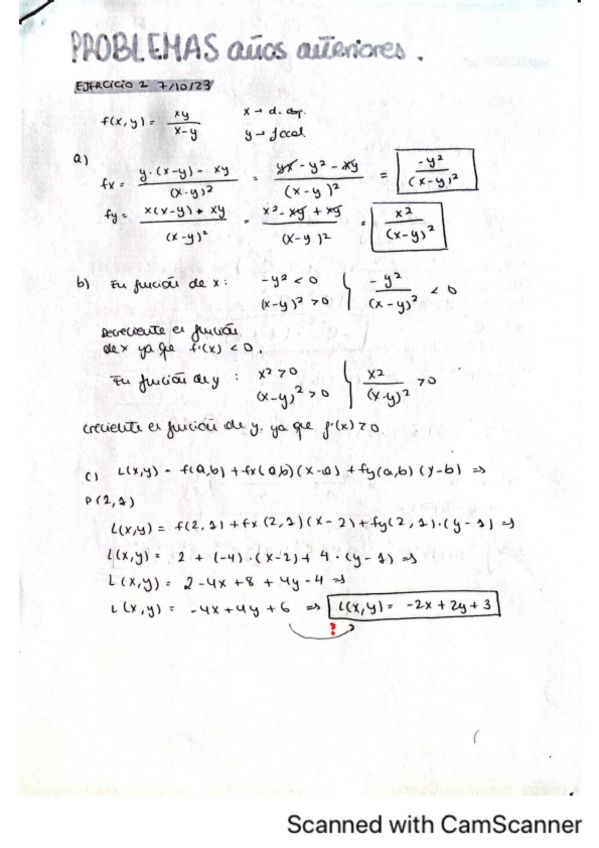 PROBLEMAS años anteriores.
EJERCICIO 2 7/10/23
f(x,y) = xy / x-y x → d. op. y → focal
a)
fx = y·(x-y) - xy / (x-y)² = yx - y² - xy / (x-y)² = -y² / (x-y)²
fy = x(x-y) + xy / (x-y)² = x² - xy + xy / (x-y)² = x² / (x-y)²
b) En función de x: -y² < 0 (x-y)² > 0 } -y² / (x-y)² < 0
Decreciente en función
de x ya que f'(x) < 0.
En función de y: x² > 0 (x-y)² > 0 } x² / (x-y)² > 0
creciente en función de y. ya que f'(x) > 0.
c) L(x,y) = f(a,b) + fx(a,b)(x-a) + fy(a,b)(y-b) ⇒
P(2,1)
L(x,y) = f(2,1) + fx(2,1)(x-2) + fy(2,1)·(y-1) ⇒
L(x,y) = 2 + (-4)·(x-2) + 4·(y-1) ⇒
L(x,y) = 2 - 4x + 8 + 4y - 4 ⇒
L(x,y) = -4x + 4y + 6 ⇒ L(x,y) = -2x + 2y + 3
?
Scanned with CamScanner